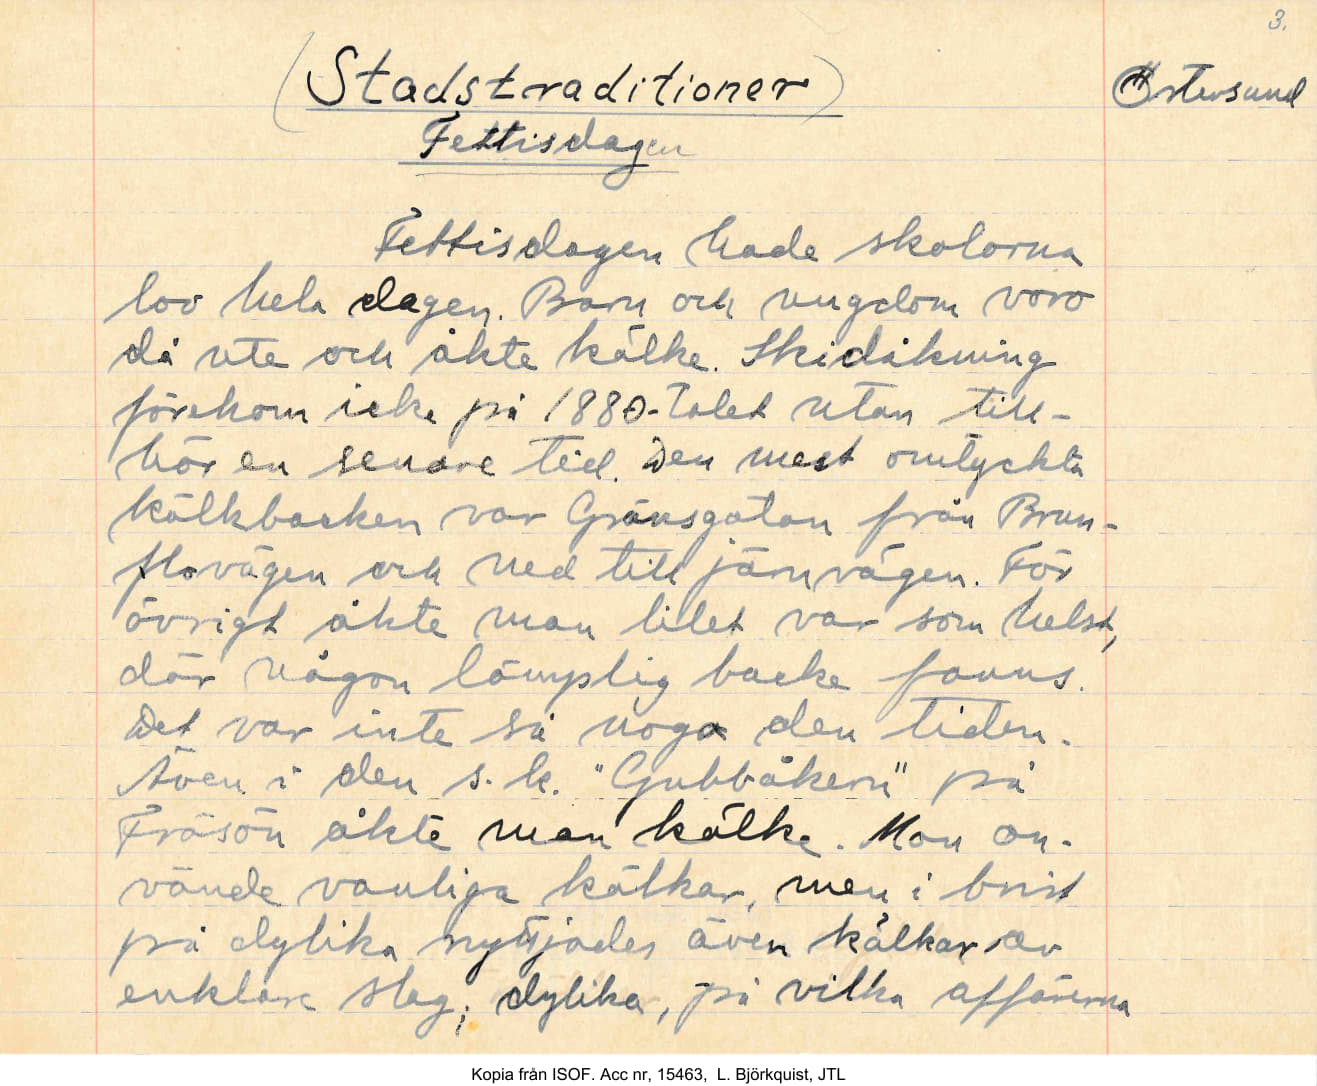 3.
(Stadstraditioner)
Östersund
Fettisdagen
Fettisdagen hade skolorna
lov hela dagen. Barn och ungdom voro
då ute och åkte kälke. Skidåkning
förekom icke på 1880-talet utan till-
hör en senare tid. Den mest omtyckta
kälkbacken var Gränsgatan från Brun-
flovägen och ned till järnvägen. För
övrigt åkte man litet var som helst,
där någon lämplig backe fanns.
Det var inte så noga den tiden.
Även i den s.k. "Gubbåkern" på
Frösön åkte man kälke. Man an-
vände vanliga kälkar, men i brist
på dylika nyttjades även kälkar av
enklare slag; dylika, på vilka affärerna
Kopia från ISOF. Acc nr, 15463, L. Björkquist, JTL